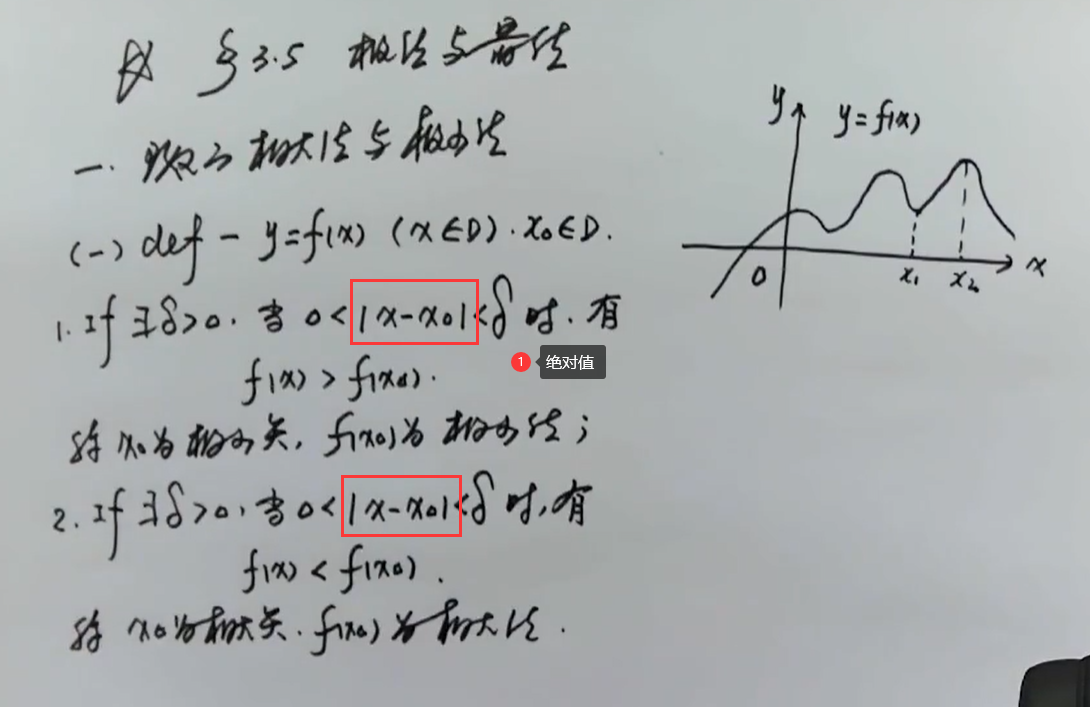 §3.5 极值与最值
一. 函数的极大值与极小值
(一) def - y=f(x) (x∈D). x₀∈D.
1. If ∃δ>0, 当 0<|x-x₀|<δ 时, 有
绝对值
f(x) > f(x₀).
称 x₀为极小点, f(x₀)为极小值;
2. If ∃δ>0, 当 0<|x-x₀|<δ 时, 有
f(x) < f(x₀).
称 x₀为极大点, f(x₀)为极大值.
y
y=f(x)
0
x₁
x₂
x
1